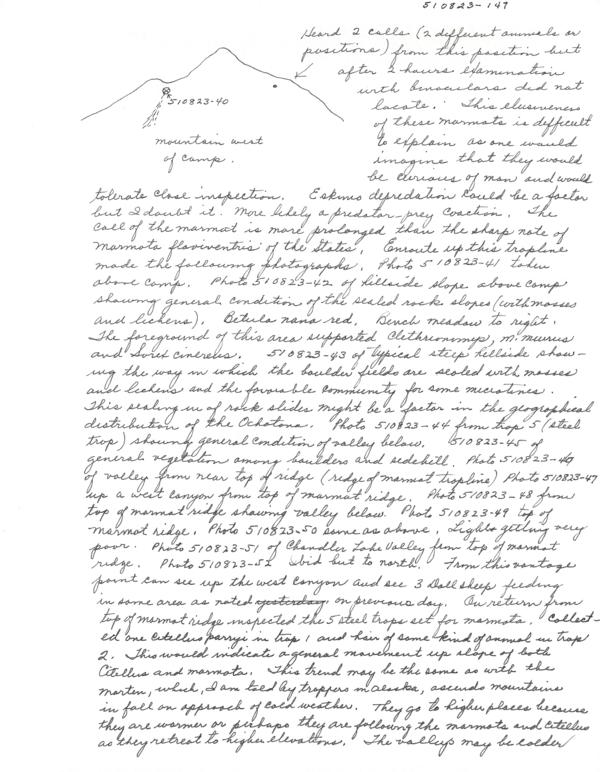 510823-147
Heard 2 calls (2 different animals or
positions) from this position but
after 2 hours examination
with binoculars did not
locate. This elusiveness
of these marmots is difficult
to explain as one would
imagine that they would
be curious of man and would
510823-40
mountain west
of camp.
tolerate close inspection. Eskimo depredation could be a factor
but I doubt it. More likely a predator-prey coaction. The
call of the marmot is more prolonged than the sharp note of
Marmota flaviventris of the States. Enroute up this trapline
made the following photographs. Photo 510823-41 taken
above camp. Photo 510823-42 of hillside slope above camp
showing general condition of the sealed rock slopes (with mosses
and lichens). Betula nana red. Bench meadow to right.
The foreground of this area supported Clethrionomys, M. murius
and Sorex cinereus. 510823-43 of typical steep hillside show-
ing the way in which the boulder fields are sealed with mosses
and lichens and the favorable community for some microtines.
This sealing in of rock slides might be a factor in the geographical
distribution of the Ochotona. Photo 510823-44 from trap 5 (steel
trap) showing general condition of valley below. 510823-45 of
general vegetation among boulders and sidehill. Photo 510823-46
of valley from near top of ridge (ridge of marmot trapline) Photo 510823-47
up a west canyon from top of marmot ridge. Photo 510823-48 from
top of marmot ridge showing valley below. Photo 510823-49 top of
marmot ridge. Photo 510823-50 same as above. Light getting very
poor. Photo 510823-51 of Chandler Lake Valley from top of marmot
ridge. Photo 510823-52 ibid but to north. From this vantage
point can see up the west canyon and see 3 Dall sheep feeding
in same area as noted yesterday on previous day. On return from
top of marmot ridge inspected the 5 steel traps set for marmots. Collect-
ed one Citellus parryi in trap 1 and hair of some kind of animal in trap
2. This would indicate a general movement up slope of both
Citellus and marmots. This trend may be the same as with the
marten, which, I am told by trappers in Alaska, ascends mountains
in fall on approach of cold weather. They go to higher places because
they are warmer or perhaps they are following the marmots and Citellus
as they retreat to higher elevations. The valleys may be colder